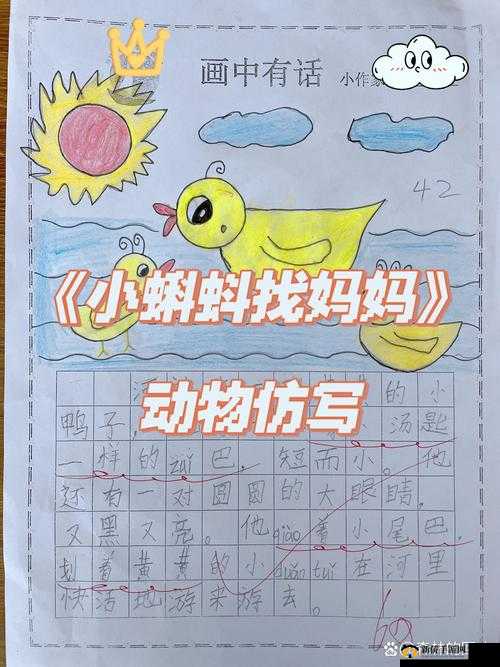 画中有话 小作家
42
《小蝌蚪找妈妈》
动物仿写
的小
鸭子,汤匙
一样的zuǐ巴。短而小。他
还有一对圆圆的大眼睛,
又黑又亮。他qiào着小尾巴。
划着黄黄的小duǎn tuǐ在河里
快活地游来游去。
60